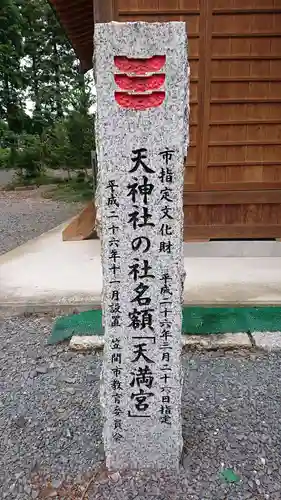 市指定文化財　平成二十六年三月二十六日指定
天神社の社名額「天満宮」
平成二十六年十一月設置　笠間市教育委員会